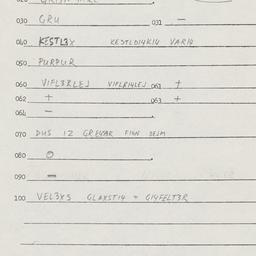 030 GRU 031 —
040 KESTL3X KESTLDI4KI4 VARI4
050 PURPUR
060 VIFL3RLEJ VIFLRI4LEJ 061 +
062 + 063 +
064 —
070 DUS 12 GREVAR FINN DEJM
080 O
090 —
100 VEL3XS GLAXSTI4 = GI4FELT3R